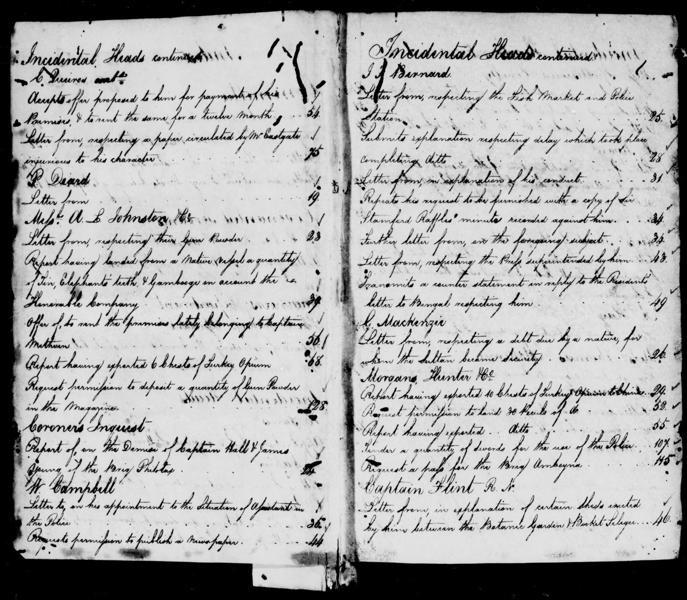 Incidental Heads continued
C. Queiros contd.
Accepts offer proposed to him for payment of his
Premises, & to rent the same for a twelve month . . 54
Letter from, respecting a paper circulated by Mr Eastgate
injurious to his character . . 75
P. Daard
Letter from . . 19
Messrs. A. L. Johnston & Co
Letter from, respecting their Gun Powder . . 23
Report having landed from a Native Vessel a quantity
of Tin, Elephants teeth, & Gamboge on account the
Honorable Company . . 39
Offer of, to rent the premises lately belonging to Captain
Methven . . 56
Report having exported 6 Chests of Turkey Opium . . 68
Request permission to deposit a quantity of Gun Powder
in the Magazine . . 128
Coroners Inquest
Report of, on the Demise of Captain Hall & James
Young of the Brig Philotax
W. Campbell
Letter to, on his appointment to the Situation of Assistant in
the Police . . 36
Requests permission to publish a Newspaper . . 44
Incidental Heads continued
J. Bernard
Letter from, respecting the Fish Market and Police
Station . . 25
Submits explanation respecting delay which took place
completing ditto . . 28
Letter from, in explanation of his conduct . . 31
Repeats his request to be furnished with a copy of Sir
Stamford Raffles' minute recorded against him . . 34
Further letter from, on the foregoing subject . . 34
Letter from, respecting the superintended by him . . 43
Transmits a counter statement in reply to the Presidents
letter to Bengal respecting him . . 49
C. Mackenzie
Letter from, respecting a debt due by a native, for
whom the Sultan became Security . . 26
Morgans, Hunter & Co
Report having exported 10 Chests of Turkey Opium to China . . 29
Request permission to land 30 Peculs of do . . 52
Report having exported ditto . . 55
Tender a quantity of swords for the use of the Police . . 107
Request a pass for the Brig Amboyna . . 145
Captain Flint R. N.
Letter from, in explanation of certain sheds erected
by him between the Botanic Garden & Bucket . . 46